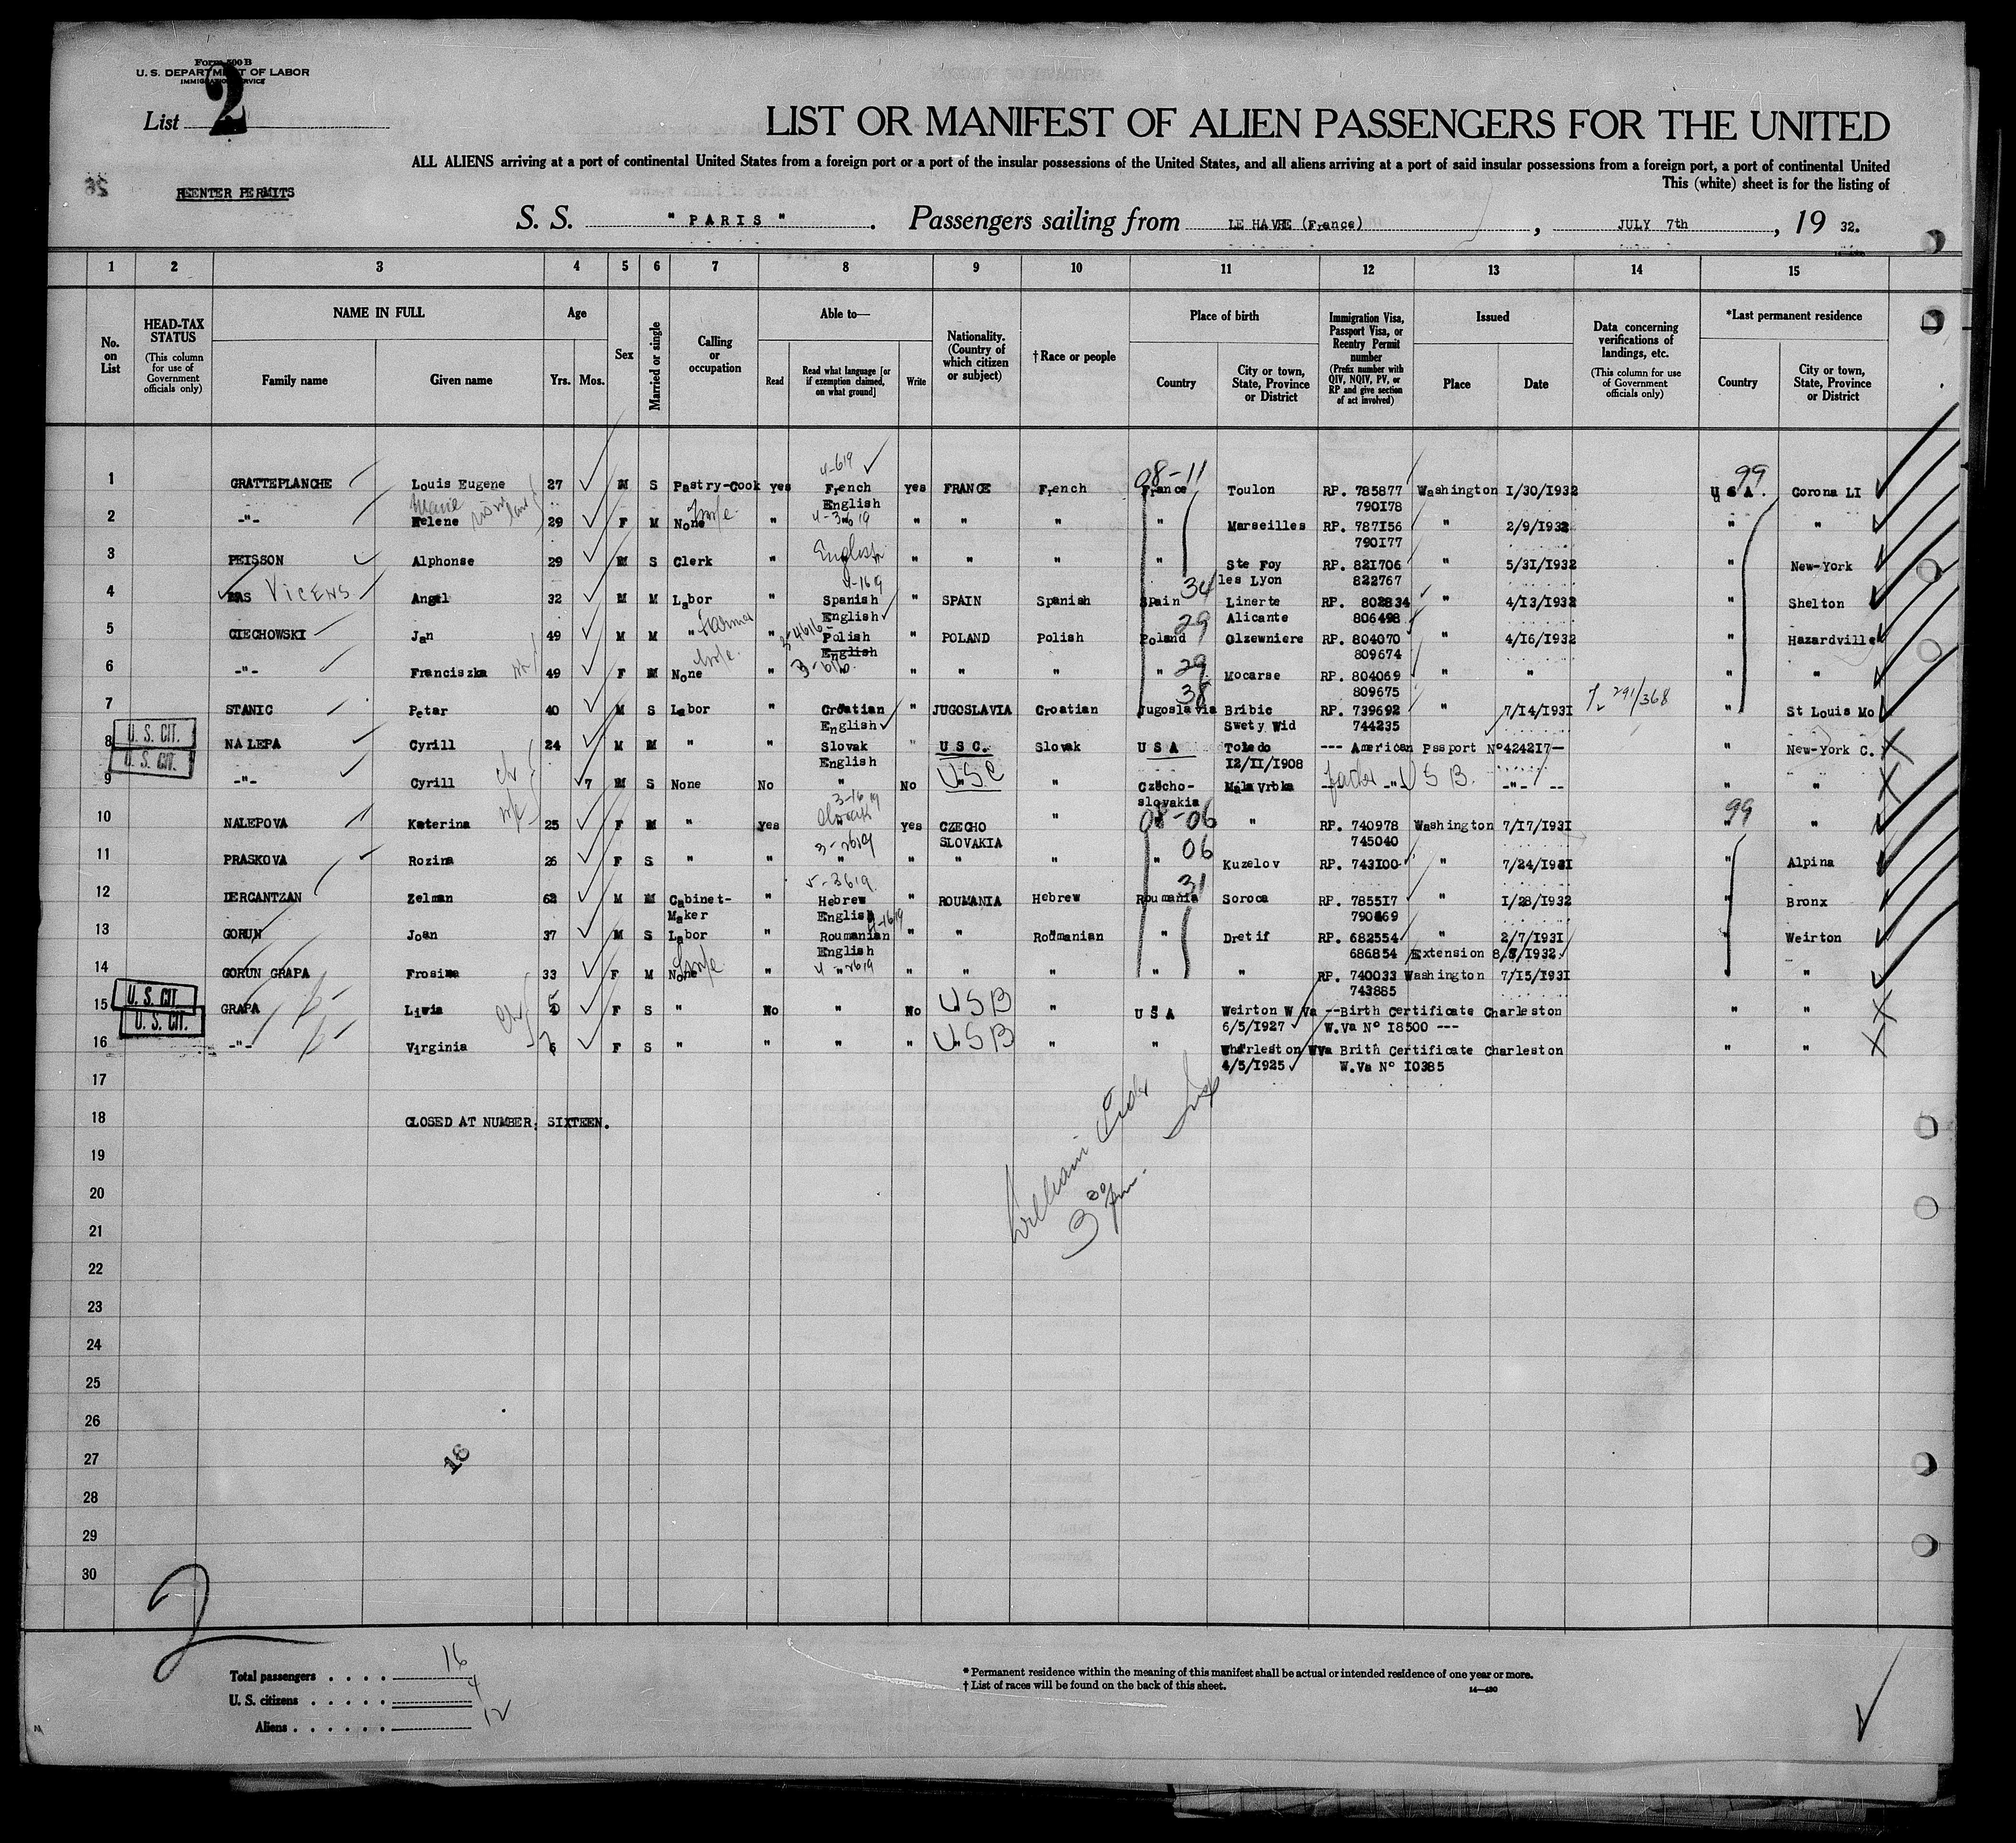 Form 500 B
U. S. DEPARTMENT OF LABOR
IMMIGRATION SERVICE
List 2
LIST OR MANIFEST OF ALIEN PASSENGERS FOR THE UNITED
ALL ALIENS arriving at a port of continental United States from a foreign port or a port of the insular possessions of the United States, and all aliens arriving at a port of said insular possessions from a foreign port, a port of continental United
This (white) sheet is for the listing of
REENTER PERMITS
S. S. " PARIS " . Passengers sailing from LE HAVRE (France) , JULY 7th , 19 32.
1 2 3 4 5 6 7 8 9 10 11 12 13 14 15
No. on List
HEAD-TAX STATUS
(This column for use of Government officials only)
NAME IN FULL
Family name Given name
Age
Yrs. Mos.
Sex
Married or single
Calling or occupation
Able to—
Read
Read what language [or if exemption claimed, on what ground]
Write
Nationality. (Country of which citizen or subject)
†Race or people
Place of birth
Country
City or town, State, Province or District
Immigration Visa, Passport Visa, or Reentry Permit number
(Prefix number with QIV, NQIV, PV, or RP and give section of act involved)
Issued
Place Date
Data concerning verifications of landings, etc.
(This column for use of Government officials only)
*Last permanent residence
Country
City or town, State, Province or District
4-619 08-11 99
1 GRATTEPLANCHE Louis Eugene 27 M S Pastry-Cook yes French yes FRANCE French France Toulon RP. 785877 Washington 1/30/1932 U S A. Corona LI
English 790178
2 -"- Helene 29 F M None " " " " " " Marseilles RP. 787156 " 2/9/1932 " "
790177
3 PEISSON Alphonse 29 M S Clerk " English " " " " Ste Foy RP. 821706 " 5/31/1932 " New-York
les Lyon 822767
34
4 BAS VICENS Angel 32 M M Labor " Spanish " SPAIN Spanish Spain Linerte RP. 802834 " 4/13/1932 " Shelton
English Alicante 806498
29
5 CIECHOWSKI Jan 49 M M " Farmer " Polish " POLAND Polish Poland Olzewniere RP. 804070 " 4/16/1932 " Hazardville
English 809674
29
6 -"- Franciszka 49 F M None " " " " " " Mocarse RP. 804069 " " " "
809675
38 291/368
7 STANIC Petar 40 M S Labor " Croatian " JUGOSLAVIA Croatian Jugoslavia Bribic RP. 739692 " 7/14/1931 " St Louis Mo
English Swety Wid 744235
U. S. CIT.
8 NALEPA Cyrill 24 M M " " Slovak " U S C. Slovak U S A Toledo --- American Pssport N°424217— " New-York C.
English 12/11/1908
U. S. CIT.
9 -"- Cyrill 7 M S None No " No USC " Czecho- Mala Vrbka father -"- U S B. -"- -- " "
slovakia
08-06 99
10 NALEPOVA Katerina 25 F M " yes yes CZECHO " " RP. 740978 Washington 7/17/1931 "
SLOVAKIA 745040
06
11 PRASKOVA Rozina 26 F S " " " " " " Kuzelov RP. 743100 " 7/24/1931 " Alpina
31
12 DERCANTZAN Zelman 62 M M Cabinet- " Hebrew " ROUMANIA Hebrew Roumania Soroca RP. 785517 " 1/28/1932 " Bronx
Maker English 790869
13 GORUN Joan 37 M S Labor " Roumanian " " Roumanian " Dretif RP. 682554 " 2/7/1931 " Weirton
English 686854 Extension 8/8/1932
14 GORUN GRAPA Frosina 33 F M None " " " " " " " RP. 740033 Washington 7/15/1931 " "
743885
U. S. CIT.
15 GRAPA Livia 5 F S " No " No USB " U S A Weirton W Va --Birth Certificate Charleston " "
6/5/1927 W.Va N° 18500 ---
U. S. CIT.
16 -"- Virginia F S " " " " USB " " Wharleston WVa Brith Certificate Charleston " "
4/5/1925 W.Va N° 10385
17
18 CLOSED AT NUMBER: SIXTEEN.
19
20
21
22
23
24
25
26
27
28
29
30
William
3 30 pm.
16
2
Total passengers . . . . 16
U. S. citizens . . . . . 4
Aliens . . . . . . 12
* Permanent residence within the meaning of this manifest shall be actual or intended residence of one year or more.
† List of races will be found on the back of this sheet.
14—430